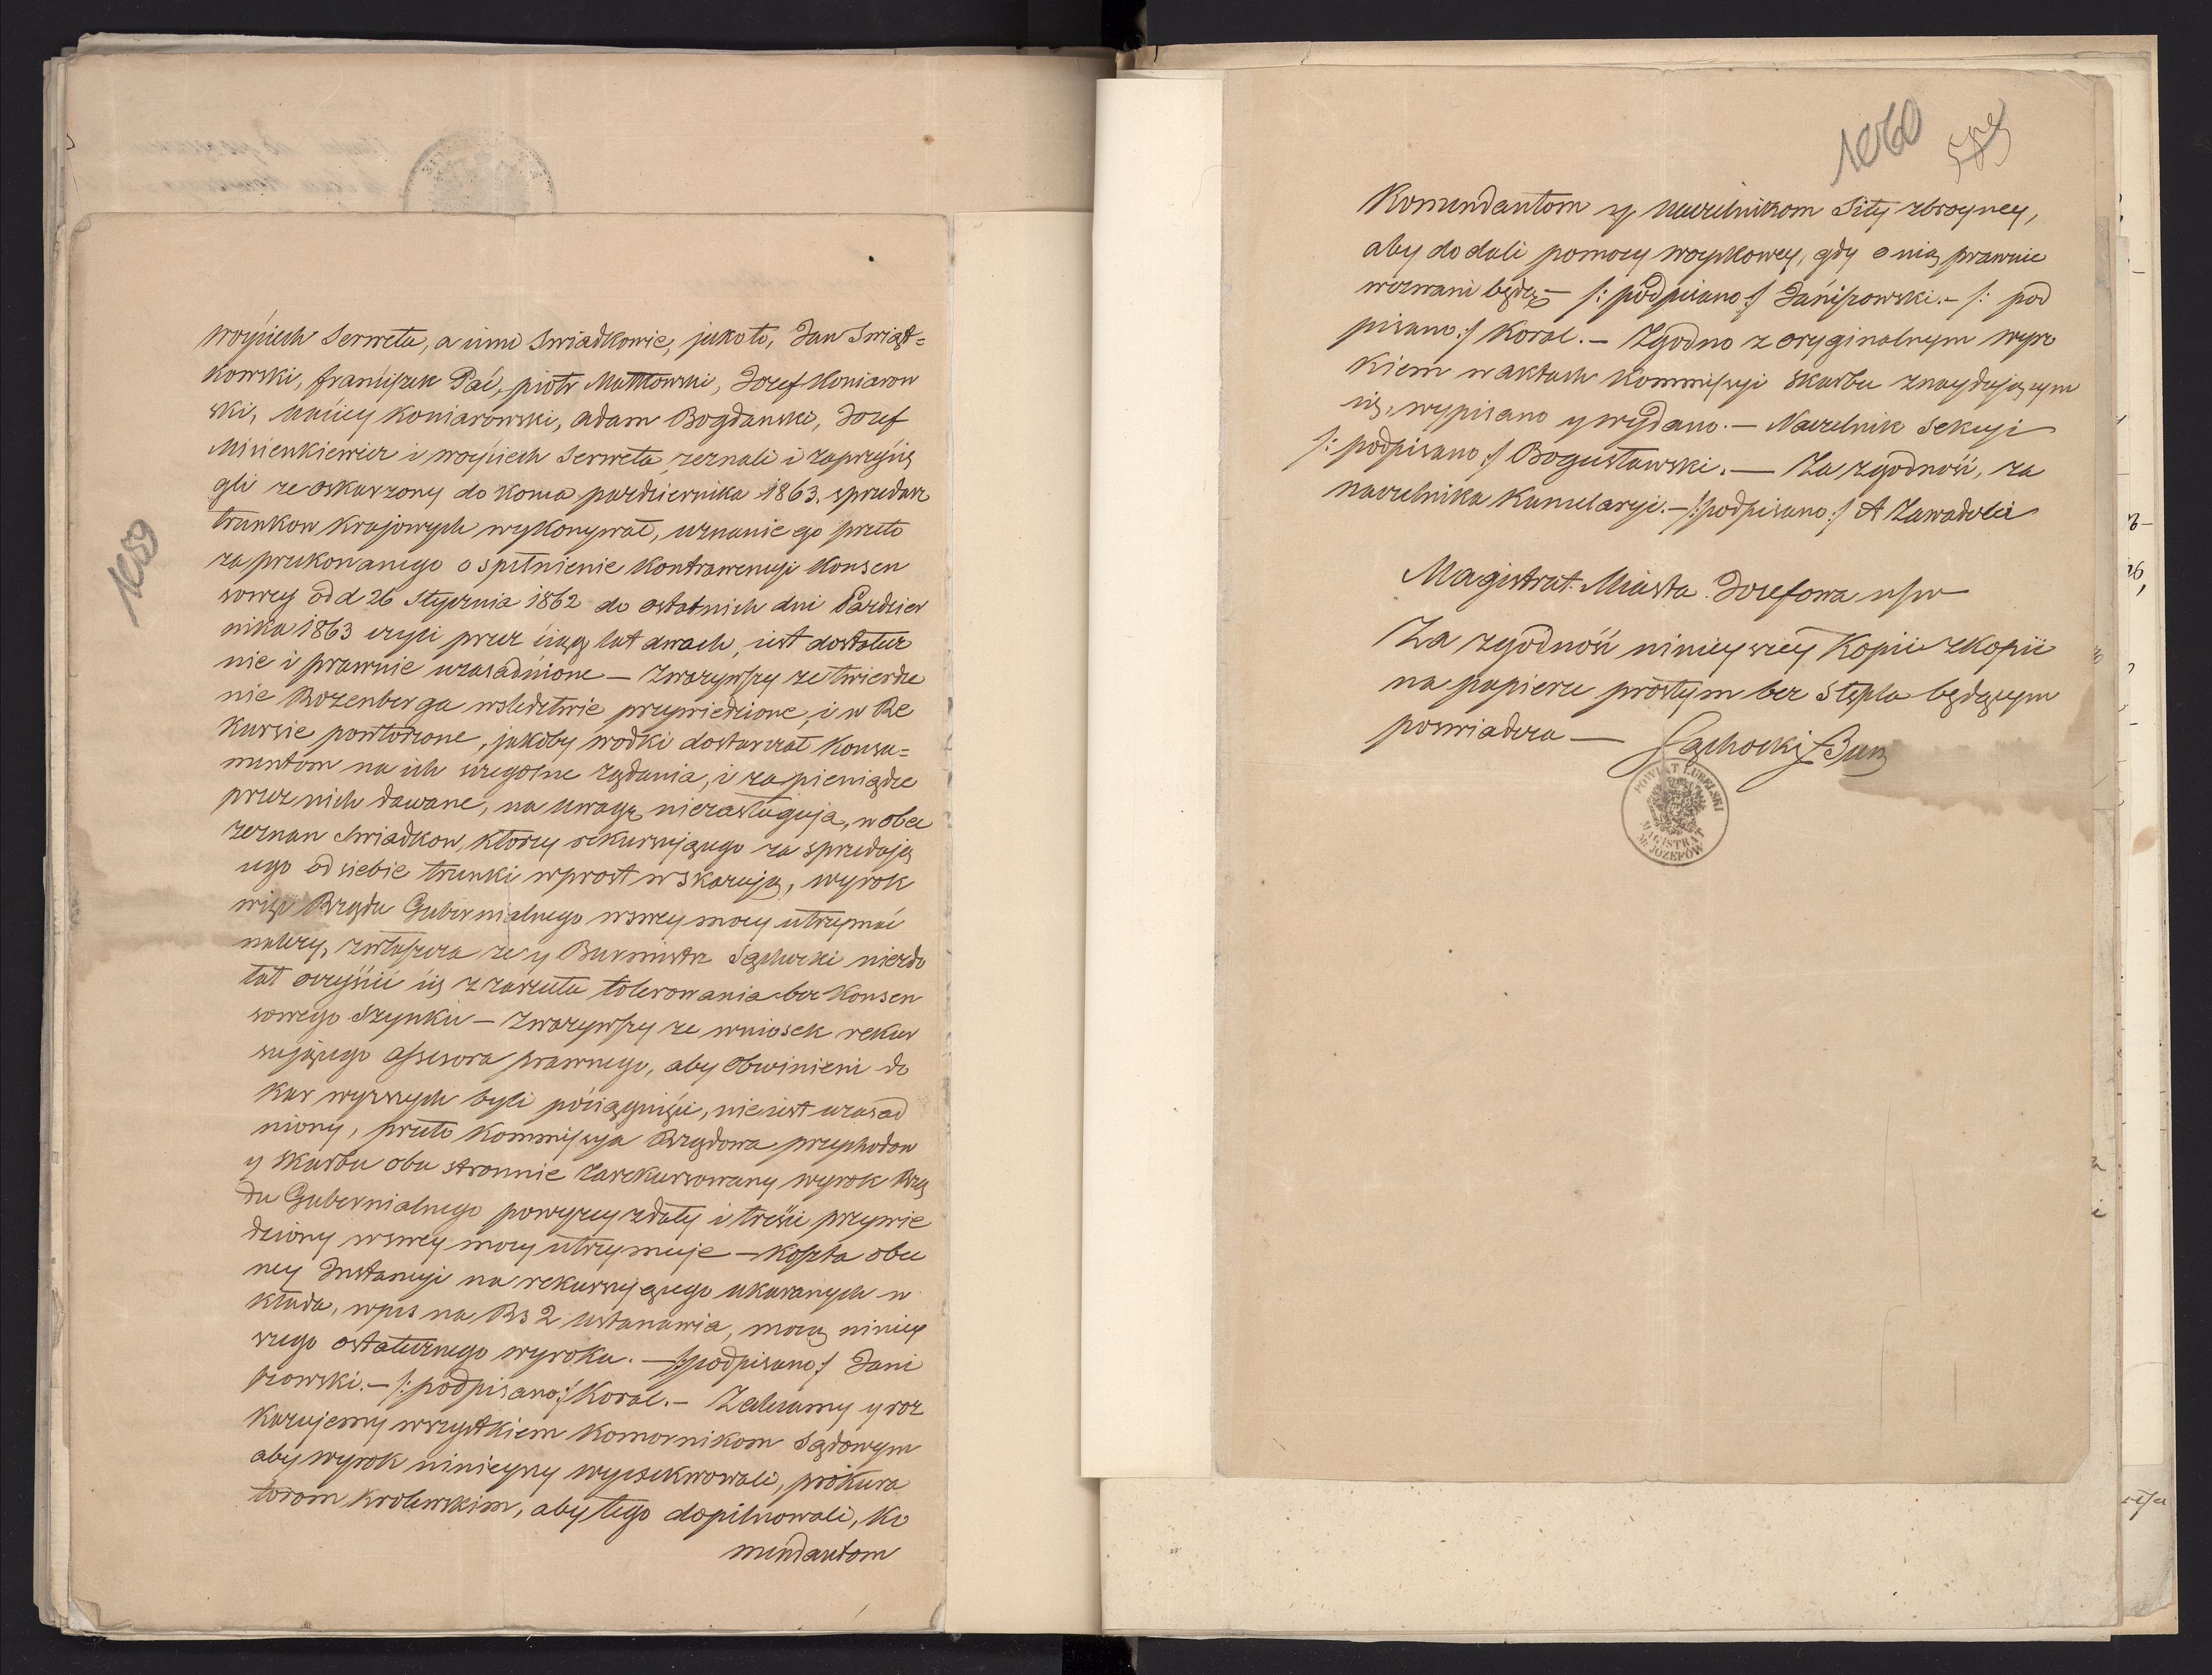 1059
Woyciech Serweta, a inni Swiadkowie, jako to, Jan Swiąt=
kowski, franciszek Pać, piotr Matkowski, Jozef Koniarow
ski, Maciey Koniarowski, adam Bogdanski, Jozef
Misienkiewicz i woyciech Serweta zeznali i zaprzysię
gli ze oskarzony do konca pazdziernika 1863. sprzedarz
trunkow krajowych wykonywał, uznanie go przeto
za przekonanego o spełnienie kontrawencyi konsen
sowey od d 26 Stycznia 1862 do ostatnich dni Pazdzier
nika 1863 czyli przez ciąg lat dwoch, iest dostatecz
nie i prawnie uzasadnione — Zwazywszy ze twierdze
nie Rozenberga wsledztwie przywiedzione, i w Re
kursie powtorzone, jakoby wodki dostarczał konsu=
mentom na ich szczegolne rządania, i za pieniądze
przez nich dawane, na uwagę niezasługuja, wobec
zeznan Swiadkow, ktorzy rekursującego za sprzedają
cego od siebie trunki wprost wskazują, wyrok
więc Rządu Gubernialnego wswey mocy utrzymać
nalezy, zwłaszcza ze y Burmistrz Sąchocki niezdo
łał oczyścić się z zarzutu tolerowania bez konsen
sowego Szynku — Zwazywszy ze wniosek rekur
sującego assesora prawnego, aby obwinieni do
kar wyzszych byli pociągnięci, nie iest uzasad
niony, przeto Kommissya Rządowa przychodow
y Skarbu obu stronnie zarekursowany wyrok Rzą
du Gubernialnego powyzey zdaty i treści przywie
dziony wswey mocy utrzymuje — koszta obec
ney Instancyi na rekursującego ukaranych w
kłada, wpis na Rs 2 ustanawia, mocą niniey
szego ostatecznego wyroku. — /:podpisano:/ Jani
szowski. — /:podpisano:/ Koral. — Zalecamy y roz
kazujemy wszystkiem Komornikom Sądowym
aby wyrok ninieyszy wyexekwowali, prokura
torom krolewskim, aby tego dopilnowali, Ko
mendantom
1060
589
Komendantom y Naczelnikom Siły zbroyney,
aby dodali pomocy woyskowey, gdy o nią prawnie
wezwani będą — /: podpisano :/ Janiszowski. — /: pod
pisano :/ Koral. — Zgodno z oryginalnym wyro
kiem w aktach Kommissyi Skarbu znaydującym
się, wypisano y wydano. — Naczelnik Sekcyi
/: podpisano :/ Bogusławski. — Za zgodność, za
naczelnika Kancelaryi. — /:podpisano:/ A Zawadzki
Magistrat Miasta Jozefowa n/w
Za zgodność ninieyszey Kopii z kopii
na papierze prostym bez Stępla będącym
poswiadcza — Sąchocki Bur
POWIAT LUBELSKI
MAGISTRAT
M: JÓZEFÓW